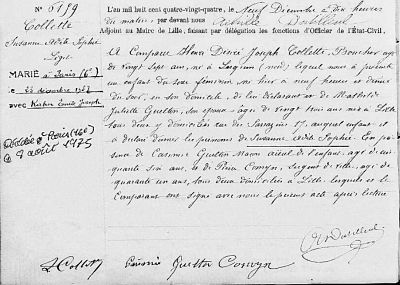 N° 5179
Collette
Suzanne Edith Sophie
Légit.
MARIÉ à Paris (6e)
le 26 décembre 1927
avec Kapfer Emile Joseph
Décédée à Paris (16e)
le 9 août 1975
L'an mil huit cent quatre-vingt-quatre, le Neuf Décembre à dix heures
du matin, par devant nous Achille
Adjoint au Maire de Lille, faisant par délégation les fonctions d'Officier de l'État-Civil,
A Comparu Henri Désiré Joseph Collette, Boucher, âgé
de Vingt sept ans, né à (Nord) lequel nous a présenté
un enfant du sexe féminin né hier à neuf heures et demie
du soir, en son domicile, de lui déclarant et de Mathilde
Juliette Guetton, son épouse, âgée de Vingt trois ans née à Lille
tous deux y domiciliés rue des Sarrazins 17, auquel enfant il
a déclaré donner les prénoms de Suzanne Edith Sophie. En pré-
sence de Casimir Guetton Maçon aïeul de l'enfant, âgé de cin-
quante six ans, et de Pierre Sergent de ville, âgé de
quarante un ans, tous deux domiciliés à Lille lesquels et le
Comparant ont signé avec nous le présent acte après lecture
Collette Casimir Guetton